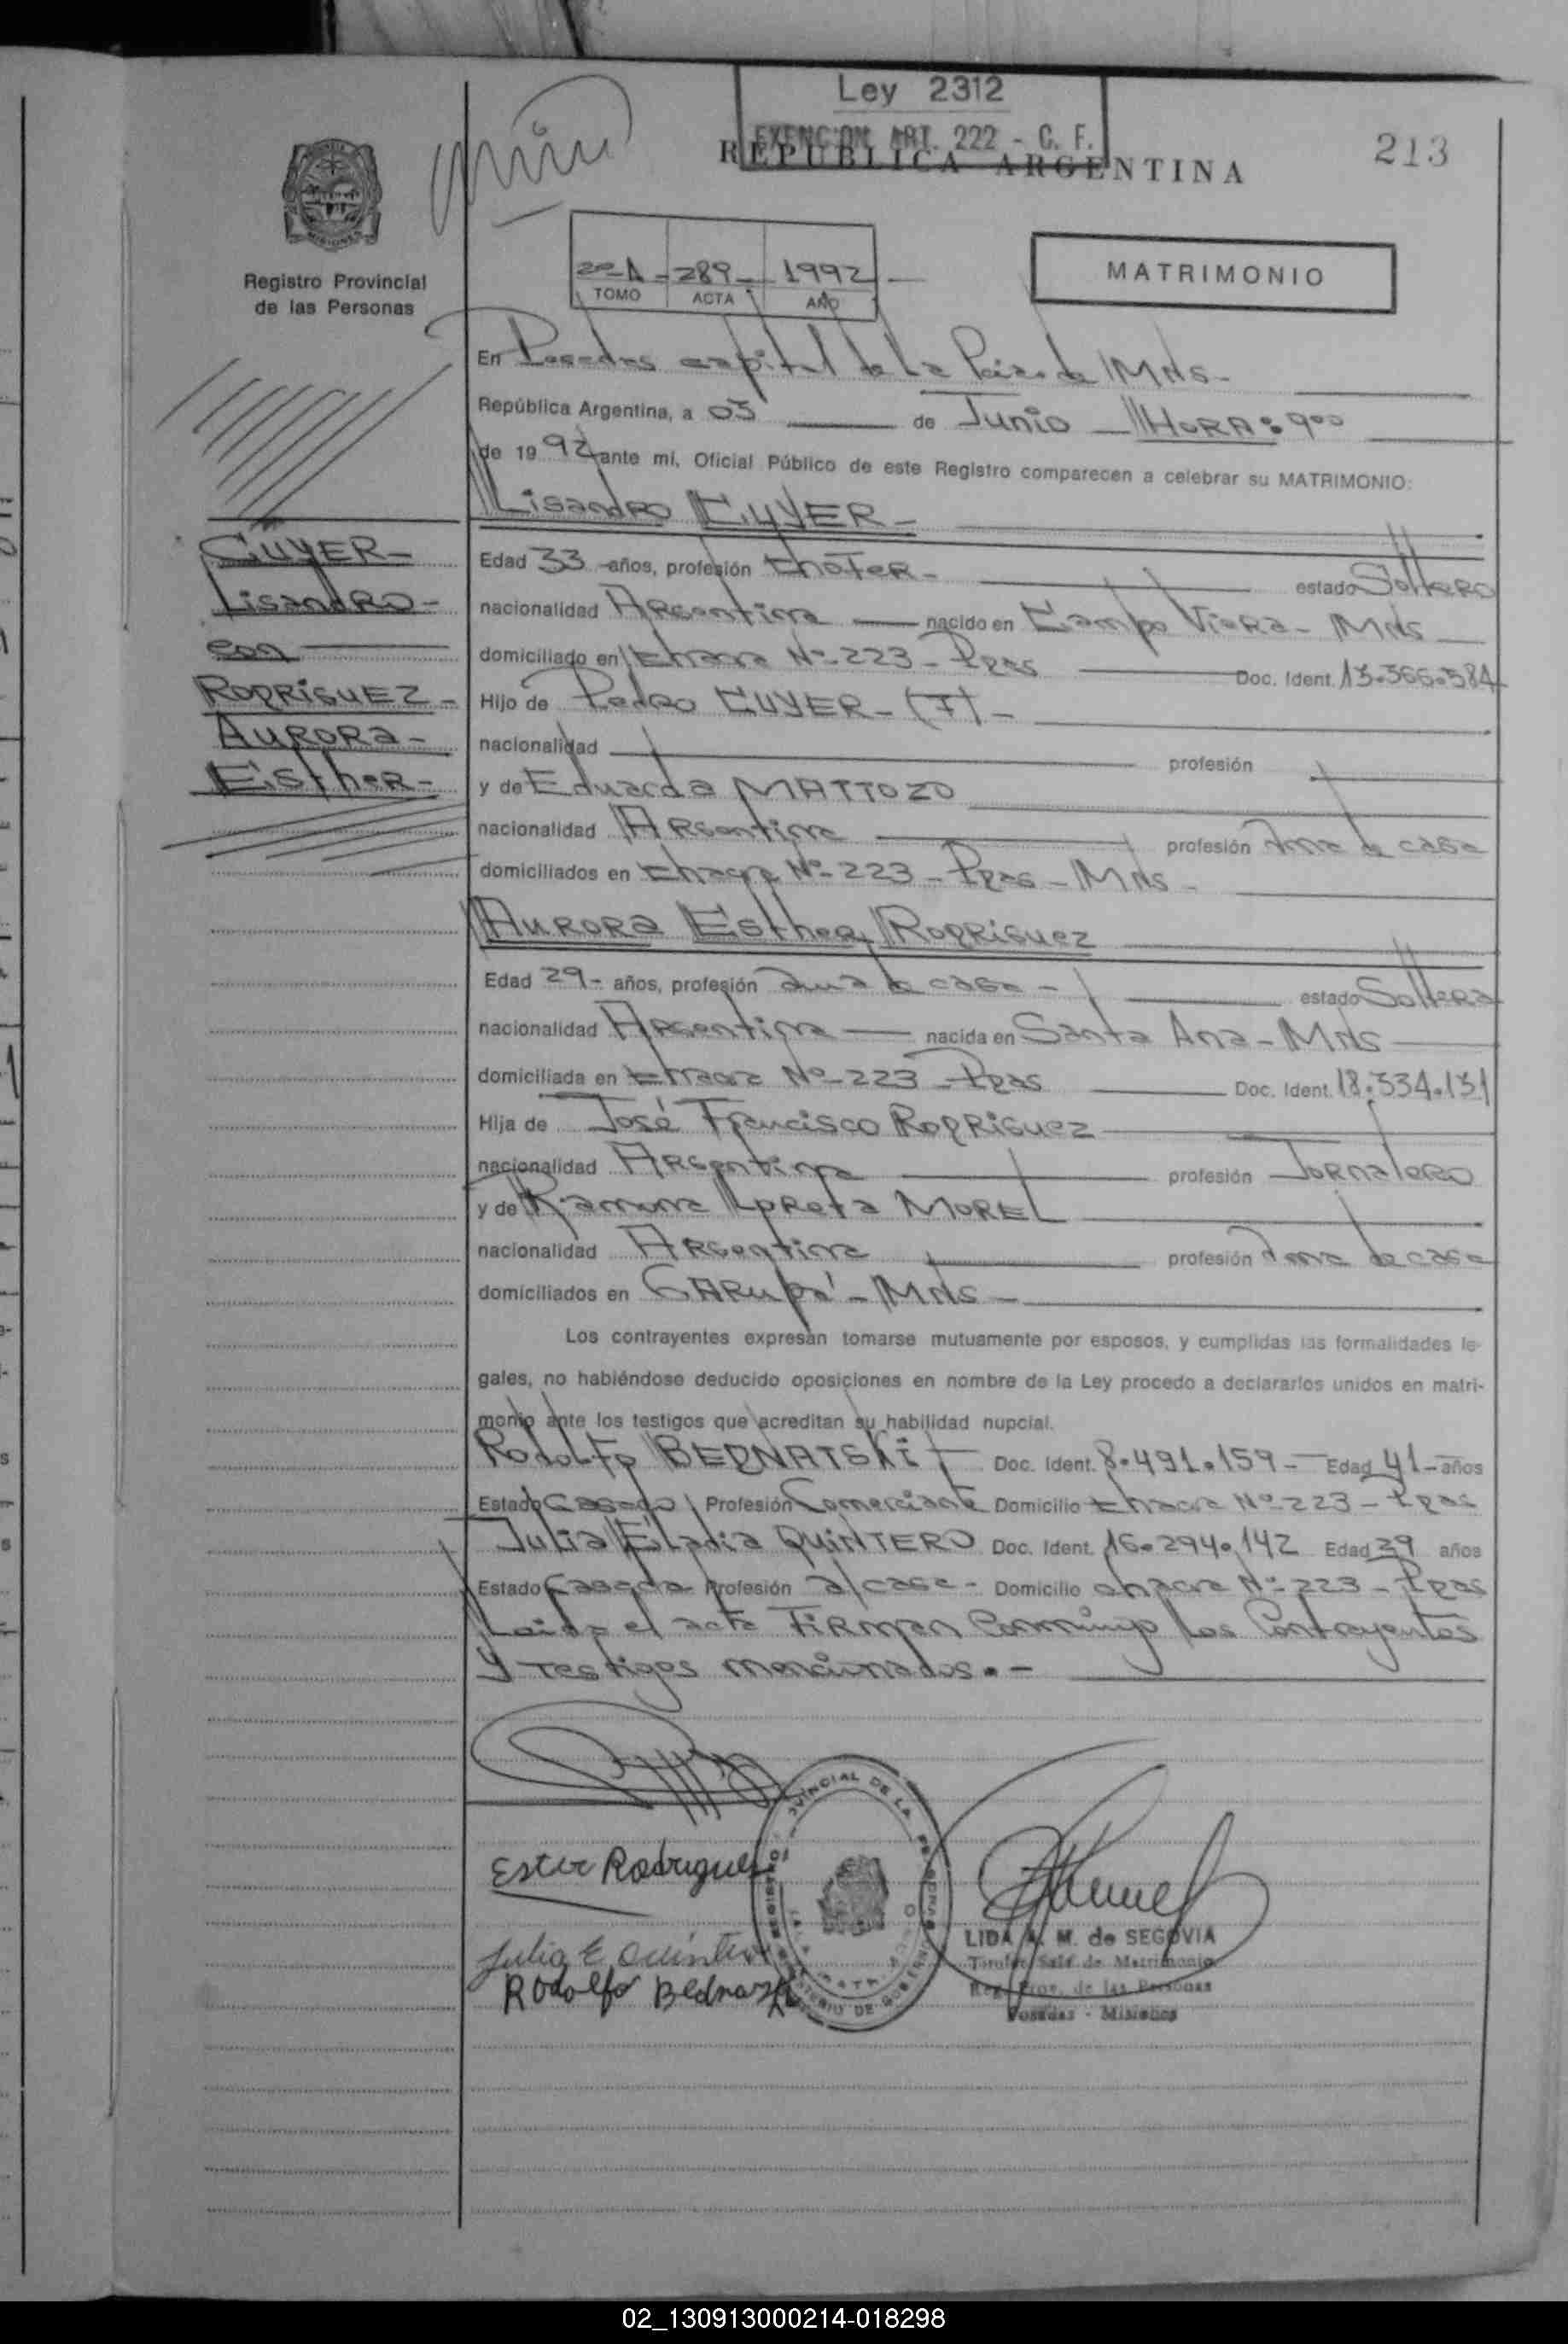 Ley 2312
EXENCION ART. 222 - C. F.
REPUBLICA ARGENTINA
213
MISIONES
Registro Provincial
de las Personas
289 - 1992 -
TOMO ACTA AÑO
MATRIMONIO
En Posadas capital de la de Mns -
República Argentina, a 05 de Junio HORA: 9°°
de 1992 ante mi, Oficial Público de este Registro comparecen a celebrar su MATRIMONIO:
Lisandro CUYER -
CUYER -
Lisandro -
con
RODRIGUEZ -
AURORA -
Esther -
Edad 33 - años, profesión Chofer - estado Soltero
nacionalidad Argentina nacido en Campo Viera - Mns
domiciliado en Chacra Nº 223 - Pdas Doc. Ident. 13.366.584
Hijo de Pedro CUYER - (F) -
nacionalidad profesión
y de Eduarda MATTOZO
nacionalidad Argentina profesión Ama de casa
domiciliados en Chacra Nº 223 - Pdas - Mns -
Aurora Esther Rodriguez
Edad 29 - años, profesión ama de casa - estado Soltera
nacionalidad Argentina nacida en Santa Ana - Mns
domiciliada en Chacra Nº 223 - Pdas Doc. Ident. 18.334.131
Hija de José Francisco Rodriguez
nacionalidad Argentina profesión Jornalero
y de Ramona Loreta MOREL
nacionalidad Argentina profesión Ama de casa
domiciliados en GARUPÁ - Mns -
Los contrayentes expresan tomarse mutuamente por esposos, y cumplidas las formalidades le-
gales, no habiéndose deducido oposiciones en nombre de la Ley procedo a declararlos unidos en matri-
monio ante los testigos que acreditan su habilidad nupcial.
Rodolfo BEDNATSKI Doc. Ident. 8.491.159 - Edad 41 - años
Estado Casado Profesión Comerciante Domicilio Chacra Nº 223 - Pdas
Julia Eladia QUINTERO Doc. Ident. 16.294.142 Edad 29 años
Estado Casada Profesión a/casa - Domicilio chacra Nº 223 - Pdas
Leida el acta Firman Conmigo los Contrayentes
y testigos mencionados. -
Ester Rodriguez
Julia E Quintero
Rodolfo
LIDA A. M. de SEGOVIA
Titular Secc. de Matrimonio
Reg. Prov. de las Personas
Posadas - Misiones
02_130913000214-018298